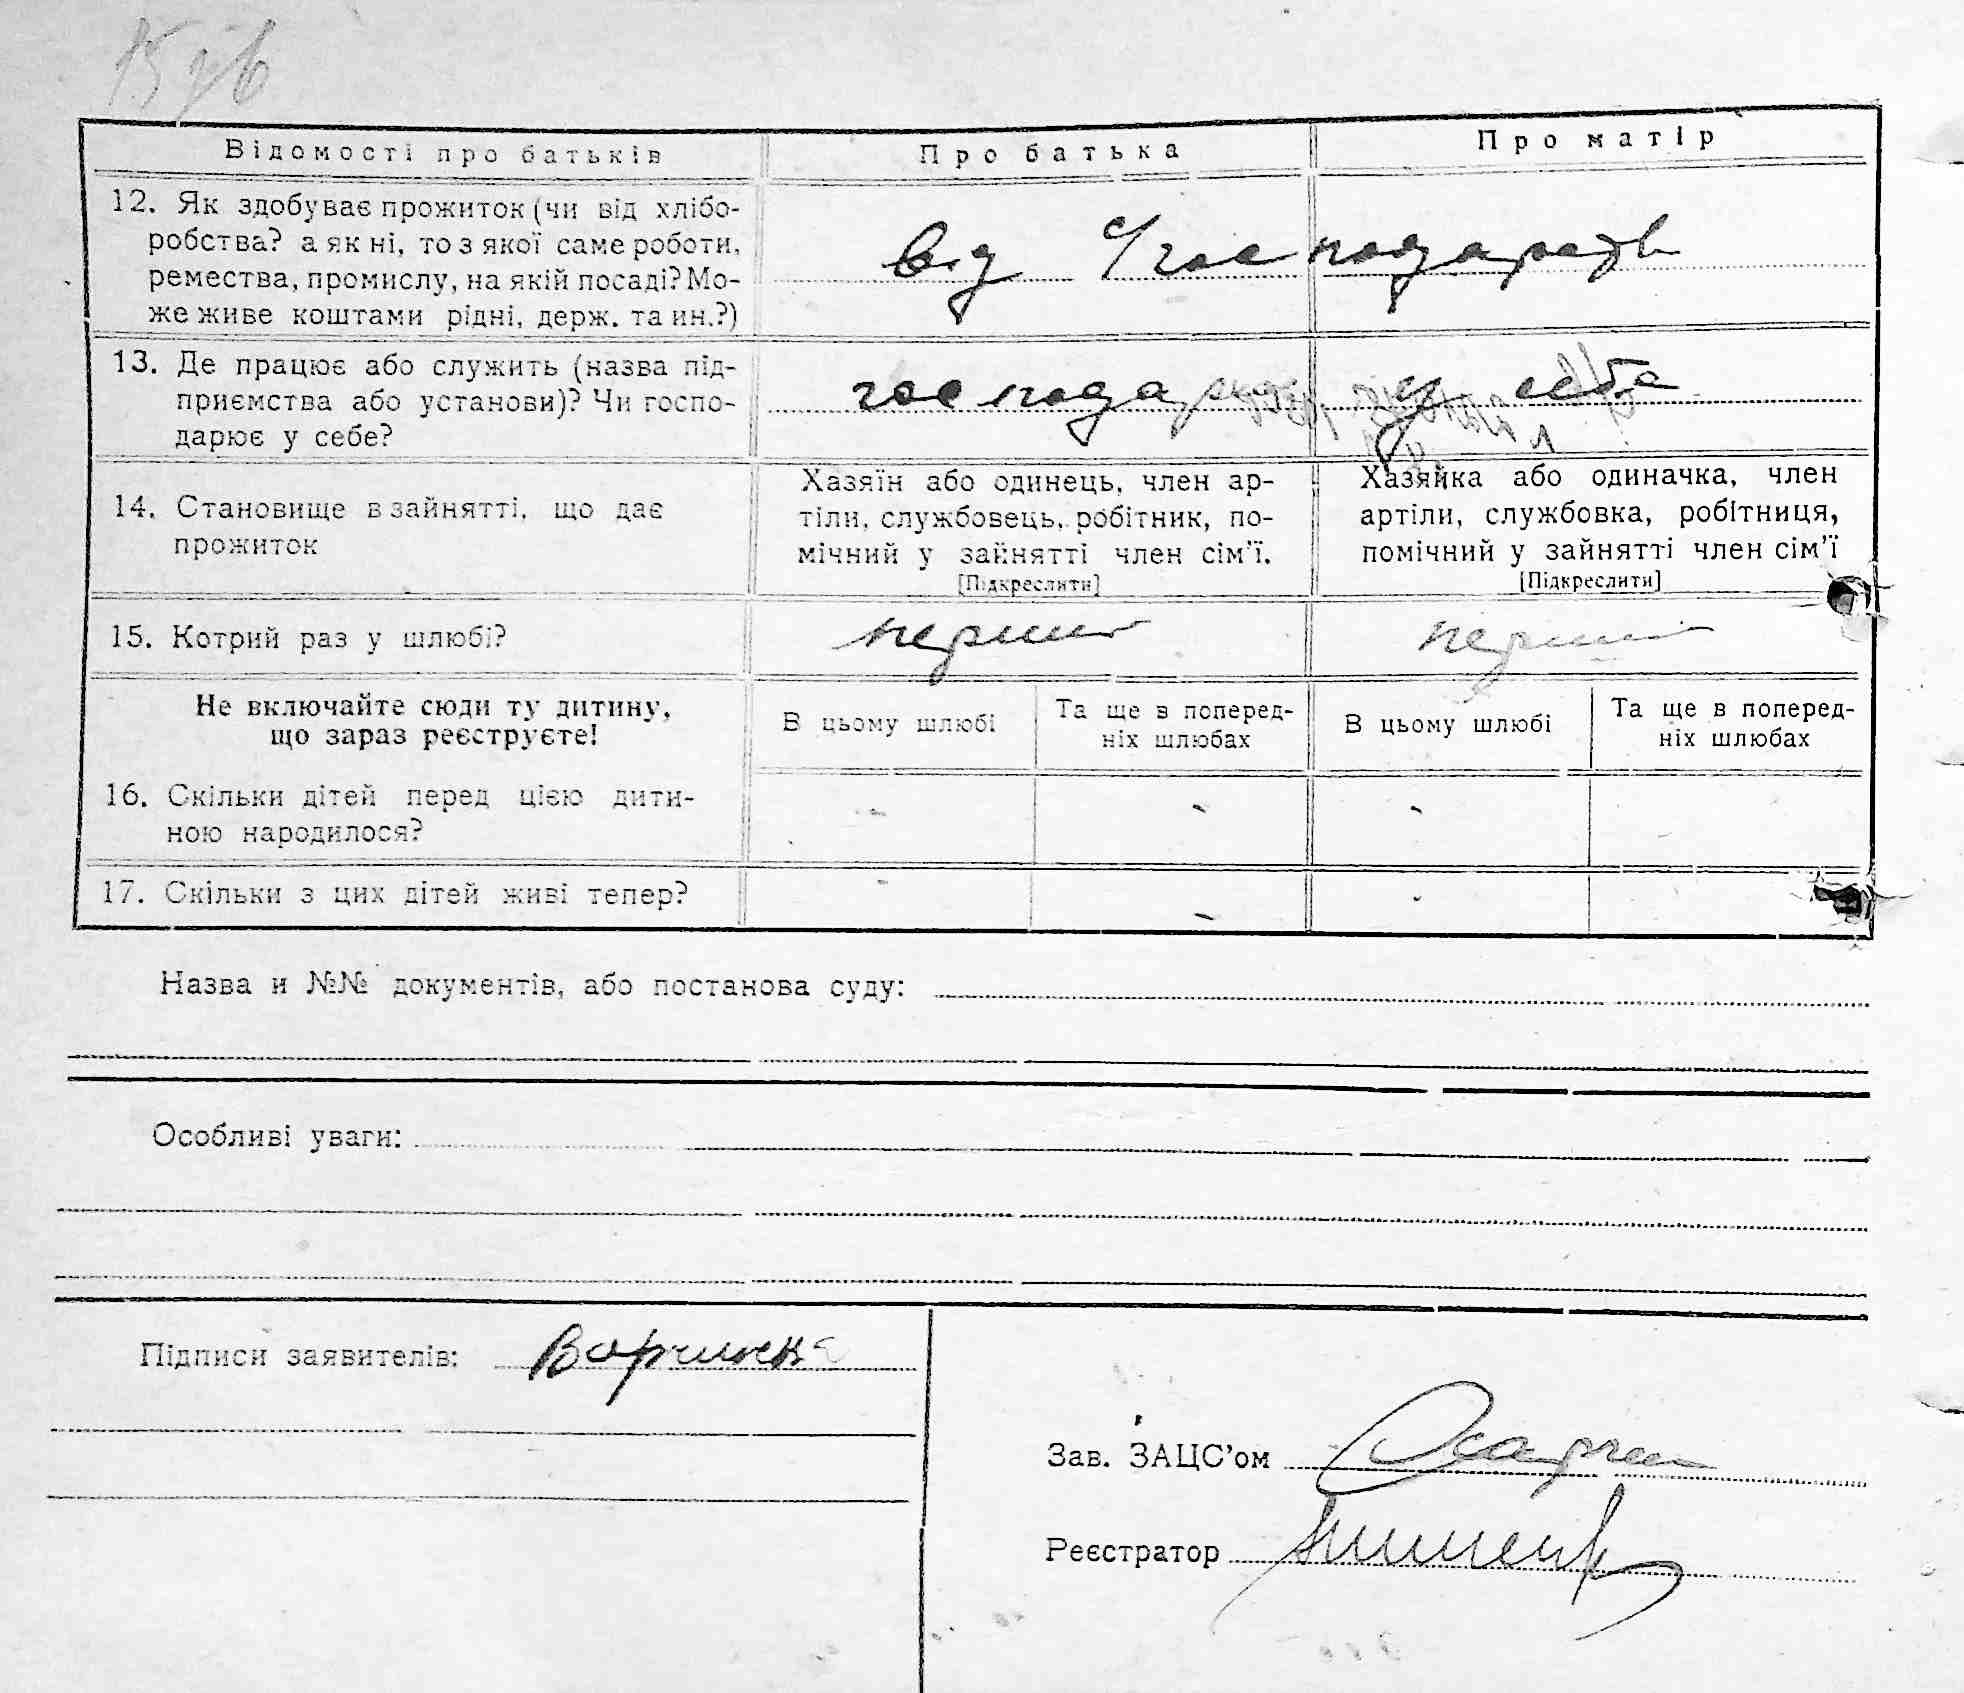 Відомості про батьків
Про батька
Про матір
12. Як здобуває прожиток (чи від хлібо-
робства? а як ні, то з якої саме роботи,
ремества, промислу, на якій посаді? Мо-
же живе коштами рідні, держ. та ин.?)
від с/господарств
13. Де працює або служить (назва під-
приємства або установи)? Чи госпо-
дарює у себе?
господарює у себе
14. Становище в зайнятті, що дає
прожиток
Хазяїн або одинець, член ар-
тіли, службовець, робітник, по-
мічний у зайнятті член сім'ї.
[Підкреслити]
Хазяйка або одиначка, член
артіли, службовка, робітниця,
помічний у зайнятті член сім'ї
[Підкреслити]
15. Котрий раз у шлюбі?
перший
перший
Не включайте сюди ту дитину,
що зараз реєструєте!
В цьому шлюбі
Та ще в поперед-
ніх шлюбах
В цьому шлюбі
Та ще в поперед-
ніх шлюбах
16. Скільки дітей перед цією дити-
ною народилося?
- - -
17. Скільки з цих дітей живі тепер?
- - -
Назва и №№ документів, або постанова суду:
Особливі уваги:
Підписи заявителів:
Зав. ЗАЦС'ом
Реєстратор